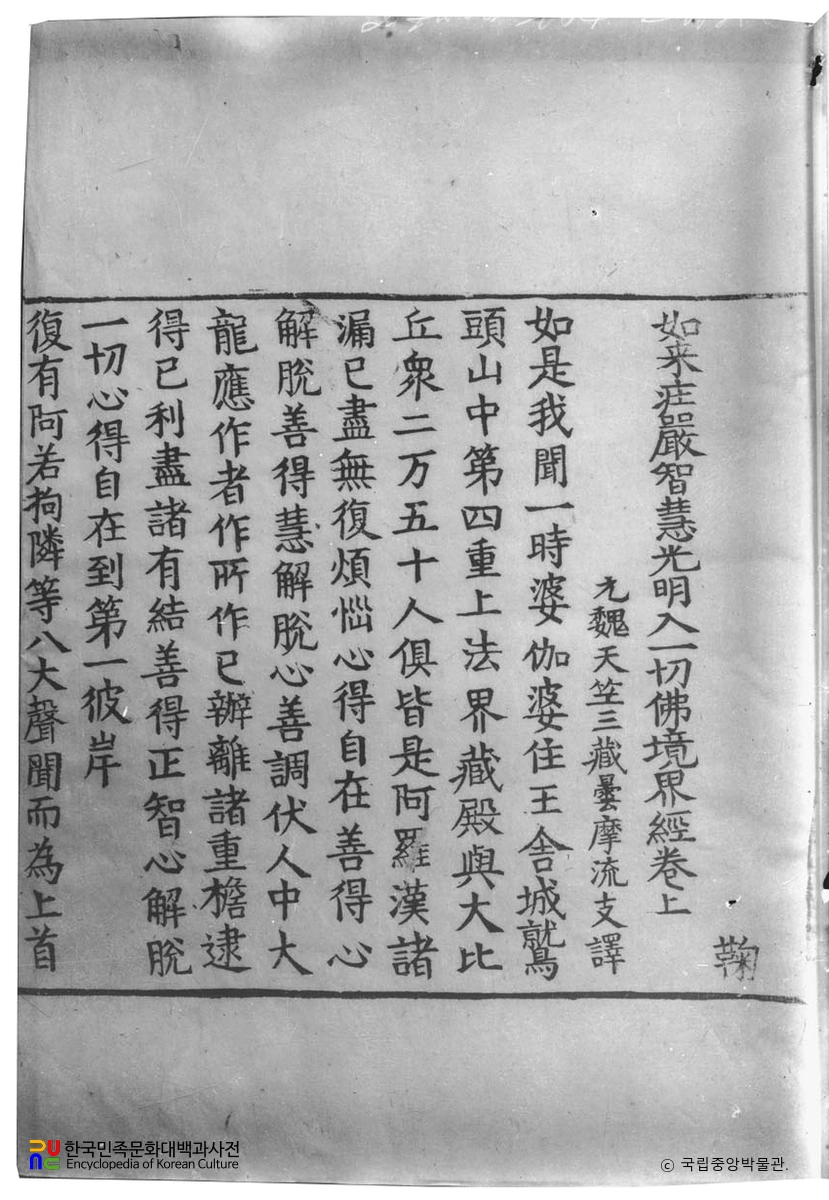 鞠
如来庄嚴智慧光明入一切佛境界經卷上
元魏天竺三藏曇摩流支譯
如是我聞一時婆伽婆住王舍城鷲
頭山中第四重上法界藏殿與大比
丘衆二万五十人俱皆是阿羅漢諸
漏已盡無復煩惱心得自在善得心
解脫善得慧解脫心善調伏人中大
龍應作者作所作已辦離諸重檐逮
得已利盡諸有結善得正智心解脫
一切心得自在到第一彼岸
復有阿若拘隣等八大聲聞而為上首
한국민족문화대백과사전
Encyclopedia of Korean Culture
© 국립중앙박물관.